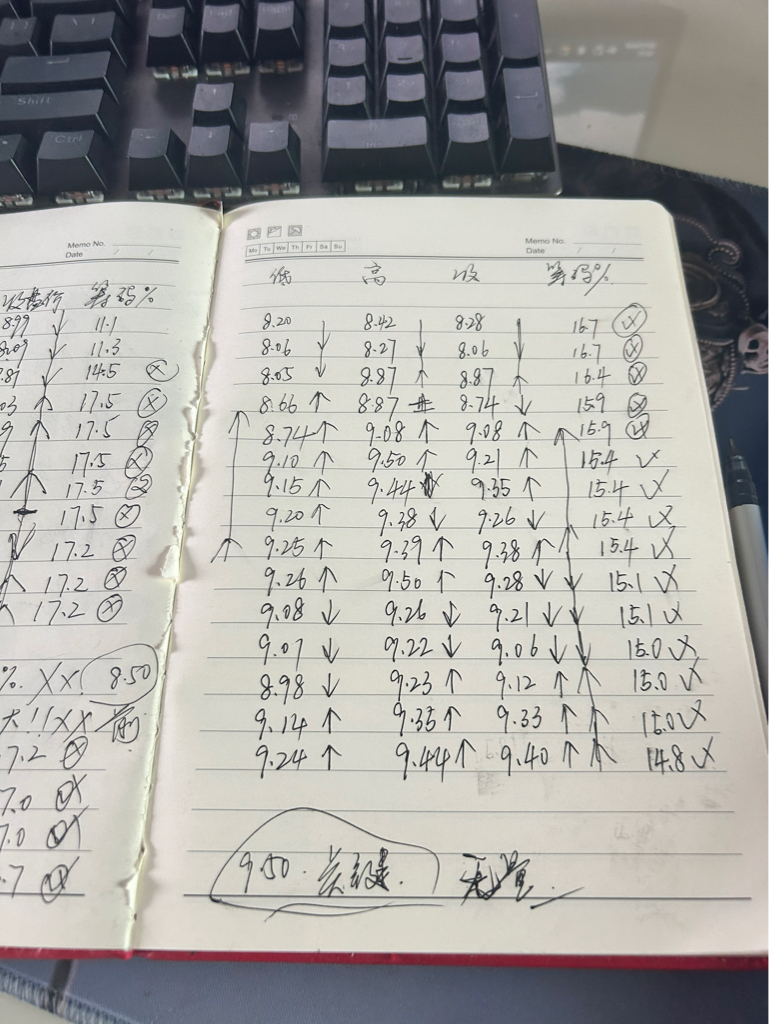 Shift
Ctrl
Memo No.
Date / /
收盘价 筹码%
8.99 ↓ 11.1
↓ 11.3
↓ 14.5 ⓧ
↑ 17.5 ⓧ
↑ 17.5 ⓧ
17.5 ⓧ
↑ 17.5 ⓧ
17.5 ⓧ
↓ 17.2 ⓧ
17.2 ⓧ
17.2 ⓧ
%. XX. 8.50
大!!XX 前
7.2 ⓧ
7.0
7.0
.7
Mo Tu We Th Fr Sa Su
Memo No.
Date / /
低 高 收 筹码%
8.20 8.42 8.28 16.7
8.06 ↓ 8.27 ↓ 8.06 ↓ 16.7
8.05 ↓ 8.87 ↑ 8.87 ↑ 16.4
8.66 ↑ 8.87 8.74 ↓ 15.9
8.74 ↑ 9.08 ↑ 9.08 ↑ 15.9
9.10 ↑ 9.50 ↑ 9.21 ↑ 15.4
9.15 ↑ 9.44 ↓ 9.35 ↑ 15.4
9.20 ↑ 9.38 ↓ 9.26 ↓ 15.4
9.25 ↑ 9.39 ↑ 9.38 ↑ 15.4
9.26 ↑ 9.50 ↑ 9.28 ↓ 15.1
9.08 ↓ 9.26 ↓ 9.21 ↓ 15.1
9.07 ↓ 9.22 ↓ 9.06 ↓ 15.0
8.98 ↓ 9.23 ↑ 9.12 ↑ 15.0
9.14 ↑ 9.35 ↑ 9.33 ↑ 15.0
9.24 ↑ 9.44 ↑ 9.40 ↑ 14.8
9.50. 关键. 无量